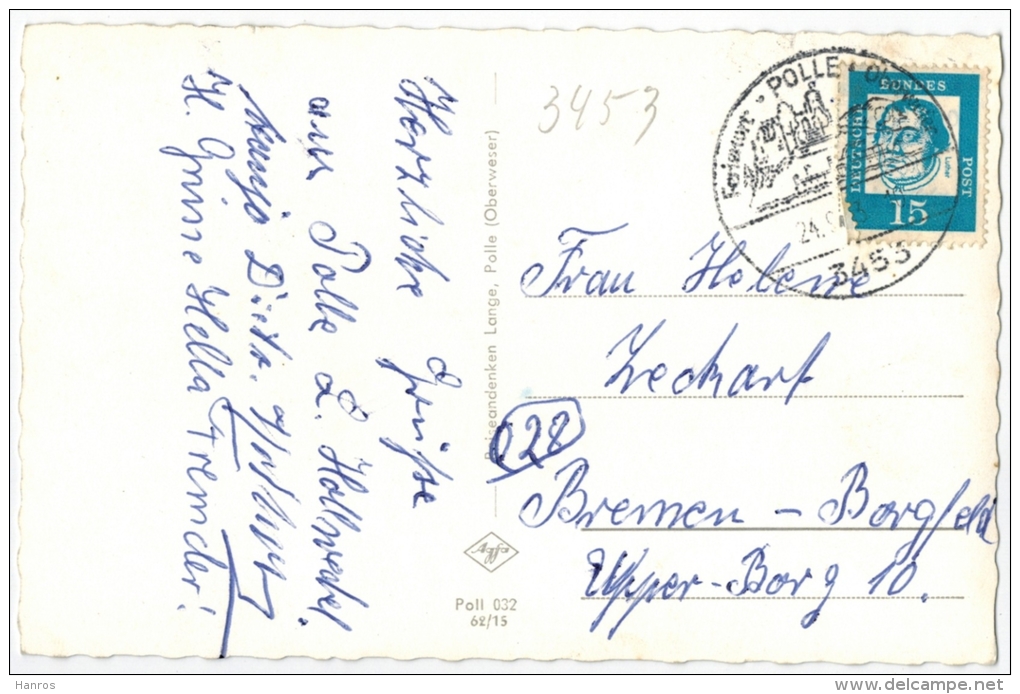 Herzliche Grüße
aus Polle
H. Grüsse Hella Fremder!
Reiseandenken Lange, Polle (Oberweser)
Agfa
Poll 032
62/15
3453
POLLE
24.
3453
DEUTSCHE
BUNDES
POST
Luther
15
Frau Helene
Zeckart
(28)
Bremen - Borgfeld
Upper-Borg 10.
Hanros
www.delcampe.net